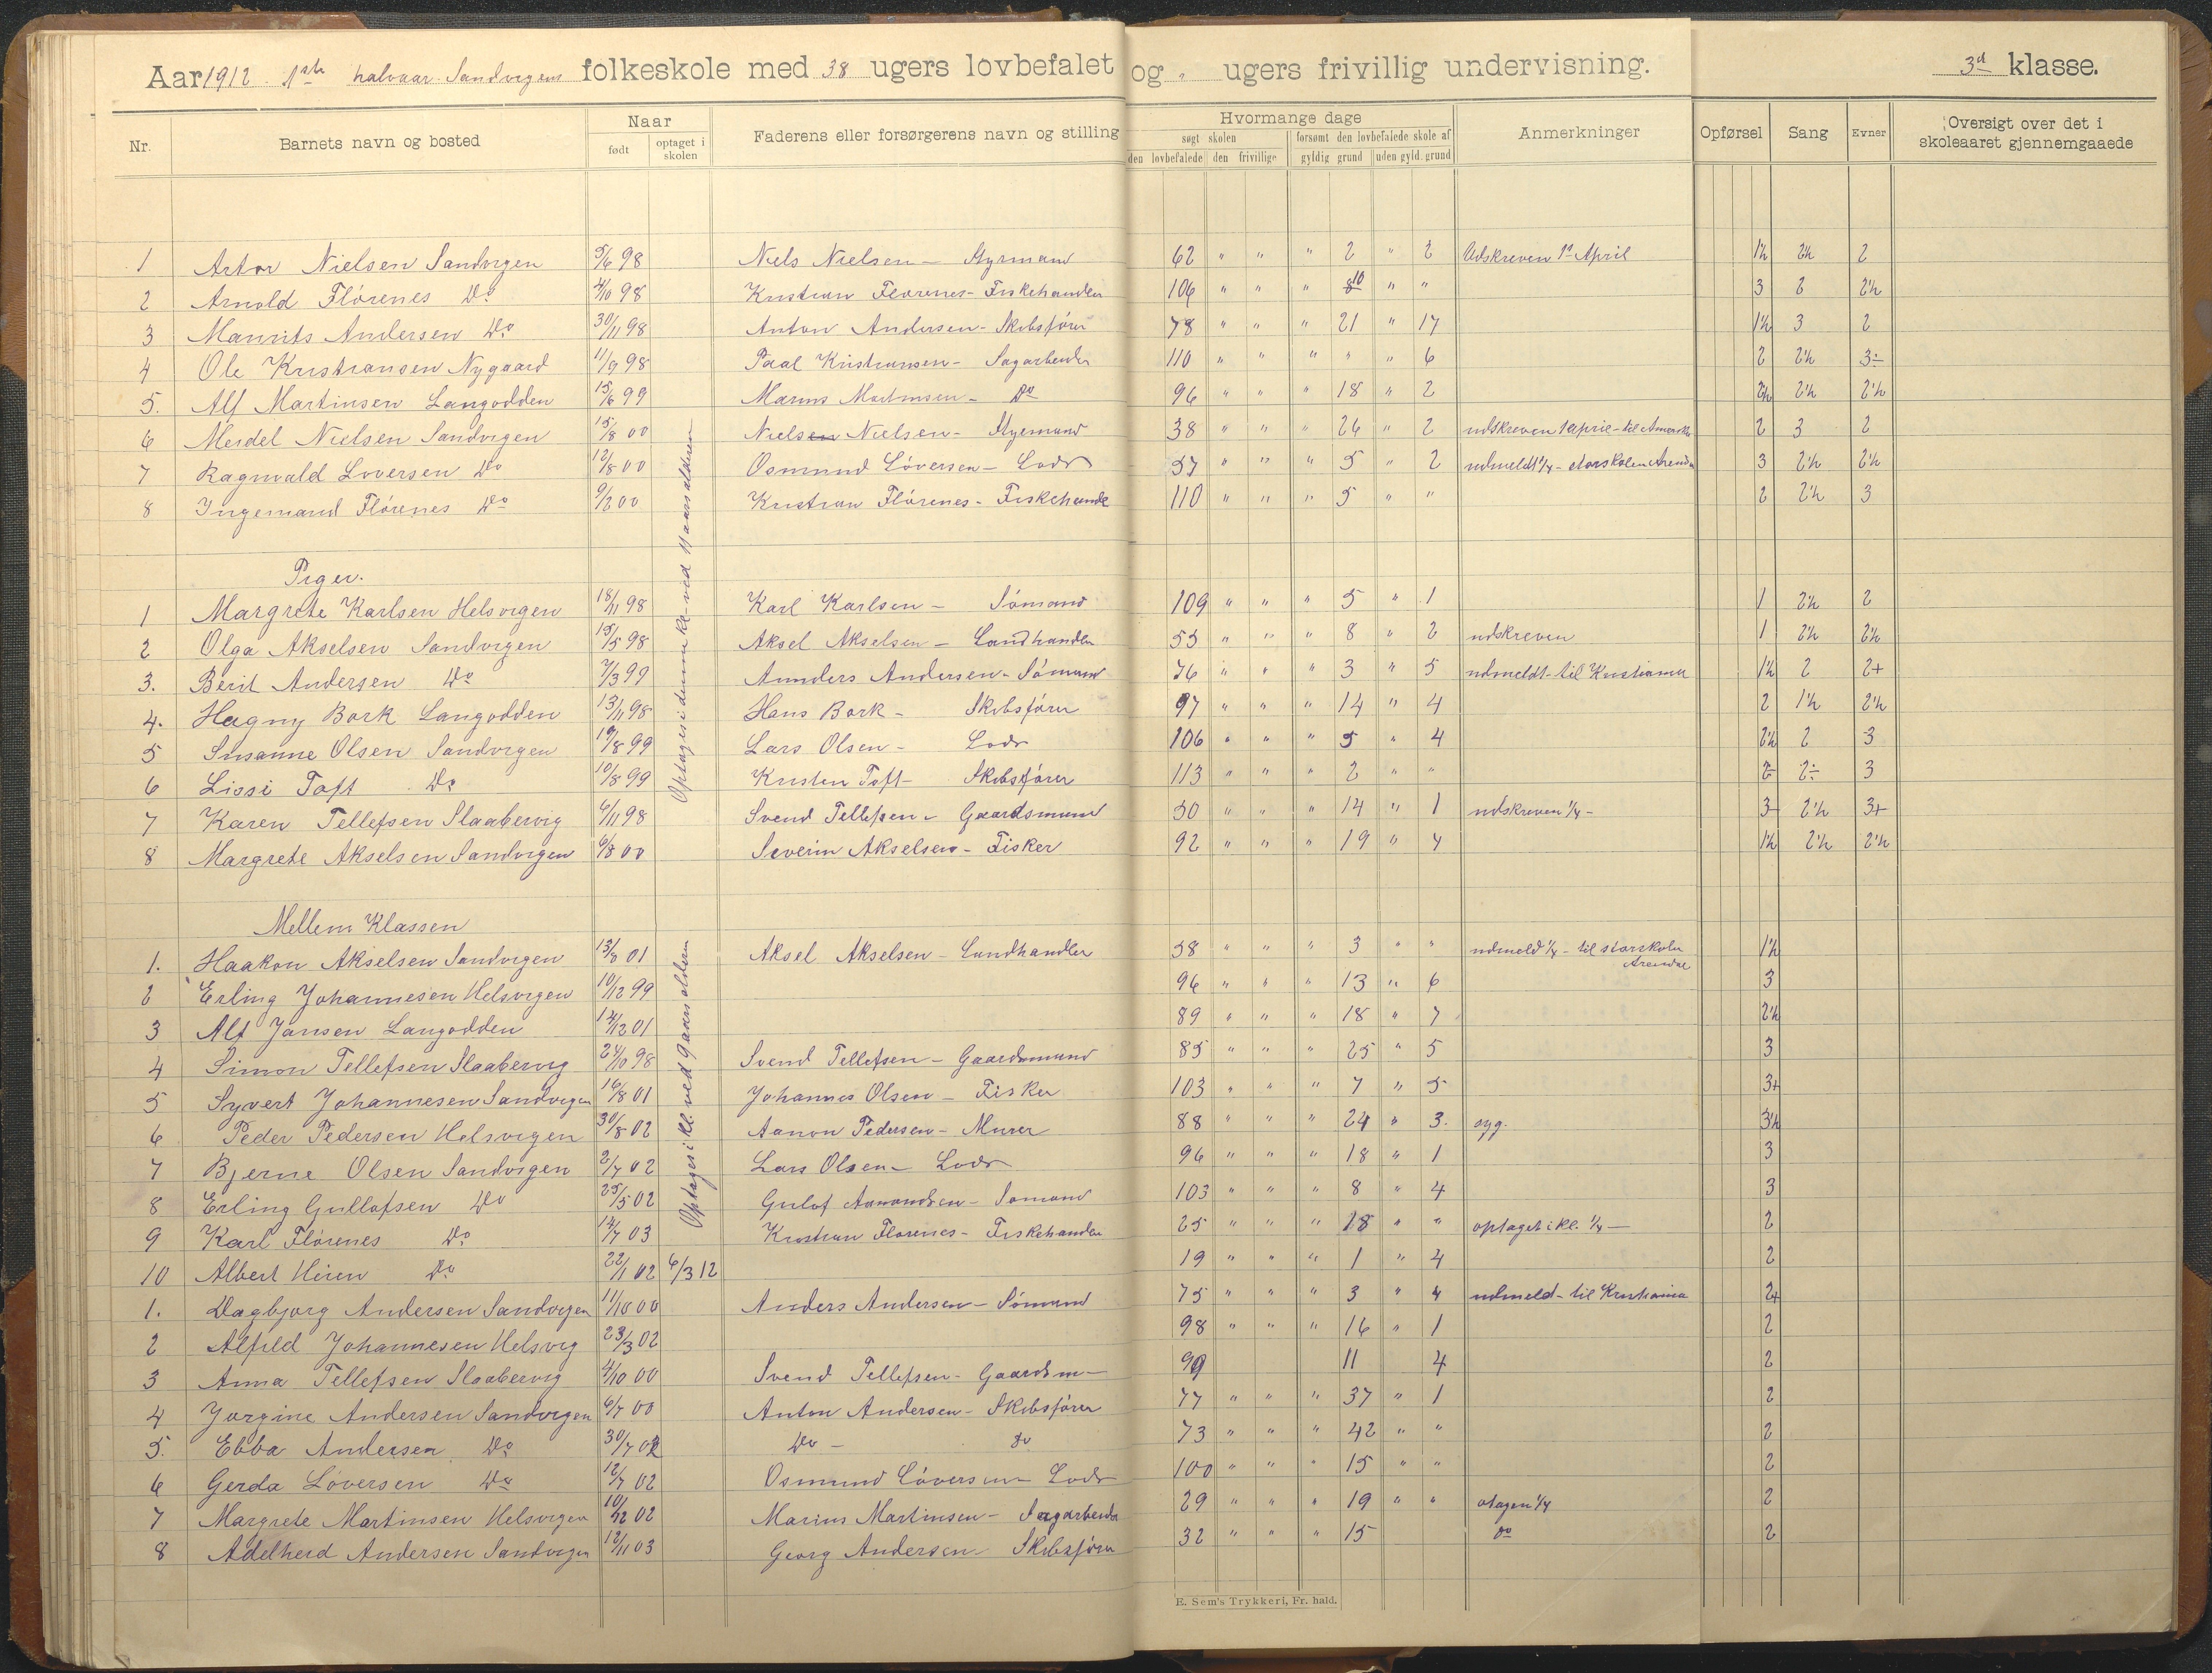 Aar 1912 1ste halvaar Sandvigens folkeskole med 38 ugers lovbefalet og " ugers frivillig undervisning. 3d klasse.
Nr. Barnets navn og bosted Naar født optaget i skolen Faderens eller forsørgerens navn og stilling Hvormange dage søgt skolen den lovbefalede den frivillige forsømt den lovbefalede skole af gyldig grund uden gyld. grund Anmerkninger Opførsel Sang Evner Oversigt over det i skoleaaret gjennemgaaede
1 Artor Nielsen Sandvigen 5/6 98 Niels Nielsen - Styrmand 62 " " " 2 " 2 Udskreven 1ste April 1½ 2½ 2
2 Arnold Flörenes Do 4/10 98 Kristian Florenes - Fiskehandler 106 " " " 10 " " 3 2 2½
3 Maurits Andersen Do 30/11 98 Anton Andersen - Skibsfører 78 " " " 21 " 17 1½ 3 2
4 Ole Kristiansen Nygaard 11/9 98 Paal Kristiansen - Sagarbeider 110 " " " " " 6 2 2½ 3÷
5. Alf Martinsen Langodden 15/6 99 Marius Martinsen - Do 96 " " " 18 " 2 2½ 2½ 2½
6 Meidel Nielsen Sandvigen 15/8 00 Nielsen Nielsen - Styrmand 38 " " " 26 " 2 udskreven 1 april - til Amerika 2 3 2
7 Ragnvald Loversen Do 12/8 00 Osmund Löversen - Lods 57 " " " 5 " 2 udmeldt 1/4 - storskolen Arendal 3 2½ 2½
8 Ingemand Flörenes Do 9/2 00 Kristian Flörenes - Fiskehandl 110 " " " 5 " " 2 2½ 3
Optages i denne kl. ved 11 aarsalderen
Piger.
1 Margrete Karlsen Helsvigen 18/11 98 Karl Karlsen - Sömand 109 " " " 5 " 1 1 2½ 2
2 Olga Akselsen Sandvigen 15/5 98 Aksel Akselsen - Landhandler 53 " " " 8 " 2 udskreven 1 2½ 2½
3. Berit Andersen Do 7/3 99 Annders Andersen - Sömand 76 " " " 3 " 5 udmeldt - til Kristiania 1½ 2 2+
4. Hagny Bork Langodden 13/11 98 Hans Bork - Skibsfører 97 " " " 14 " 4 2 1½ 2½
5 Susanne Olsen Sandvigen 19/8 99 Lars Olsen - Lods 106 " " " 5 " 4 2½ 2 3
6 Lissi Toft Do 10/8 99 Kristen Toft - Skibsfører 113 " " " 2 " " 2 2÷ 3
7 Karen Tellefsen Slaabervig 6/11 98 Svend Tellefsen - Gaardsmand 50 " " " 14 " 1 udskreven 1/4 - 3 2½ 3+
8 Margrete Akselsen Sandvigen 6/8 00 Severin Akselsen - Fisker 92 " " " 19 " 7 1½ 2½ 2½
Mellem Klassen
1. Haakon Akselsen Sandvigen 13/8 01 Aksel Akselsen - Landhandler 58 " " " 3 " " udmeld 1/4 - til storskolen Arendal 1½
2 Erling Johannesen Helsvigen 10/12 99 96 " " " 13 " 6 3
3 Alf Jansen Langodden 14/12 01 89 " " " 18 " 7 2½
4 Simon Tellefsen Slaabervig 24/10 98 Svend Tellefsen - Gaardsmand 85 " " " 25 " 5 3
5 Syvert Johannesen Sandvigen 16/8 01 Johannes Olsen - Fisker 103 " " " 7 " 5 3+
6 Peder Pedersen Helsvigen 30/8 02 Aanon Pedersen - Murer 88 " " " 24 " 3. syg. 3½
7 Bjerne Olsen Sandvigen 2/7 02 Lars Olsen - Lods 96 " " " 18 " 1 3
8 Erling Gullofsen Do 25/5 02 Gulof Aanondsen - Sömand 103 " " " 8 " 4 3
9 Karl Flörenes Do 14/7 03 Kristian Florenes - Fiskehandler 25 " " " 18 " " optaget i kl. 1/4 - 2
10 Albert Heien Do 22/1 02 6/3 12 19 " " " 1 " 4 2
Optages i kl. ved 9 aarsalderen
1. Dagbjorg Andersen Sandvigen 11/10 00 Anders Andersen - Sömand 75 " " " 3 " 4 udmeld - til Kristiania 2+
2 Alfild Johannesen Helsvig 23/3 02 98 " " " 16 " 1 2
3 Anna Tellefsen Slaabervig 4/10 00 Svend Tellefsen - Gaardsm - 99 11 4 2
4 Jorgine Andersen Sandvigen 6/7 00 Anton Andersen - Skibsfører 77 " " " 37 " 1 2
5. Ebba Andersen Do 30/7 02 Do - Do 73 " " " 42 " " 2
6 Gerda Löversen Do 12/7 02 Osmund Löversen - Lods 100 " " " 15 " " 2
7 Margrete Martinsen Helsvigen 10/12 02 Marius Martinsen - Sagarbeider 29 " " " 19 " " 2
8 Adelheid Andersen Sandvigen 12/11 03 Georg Andersen - Skibsförer 32 " " " 15 Do 2
E. Sem's Trykkeri, Fr. hald.